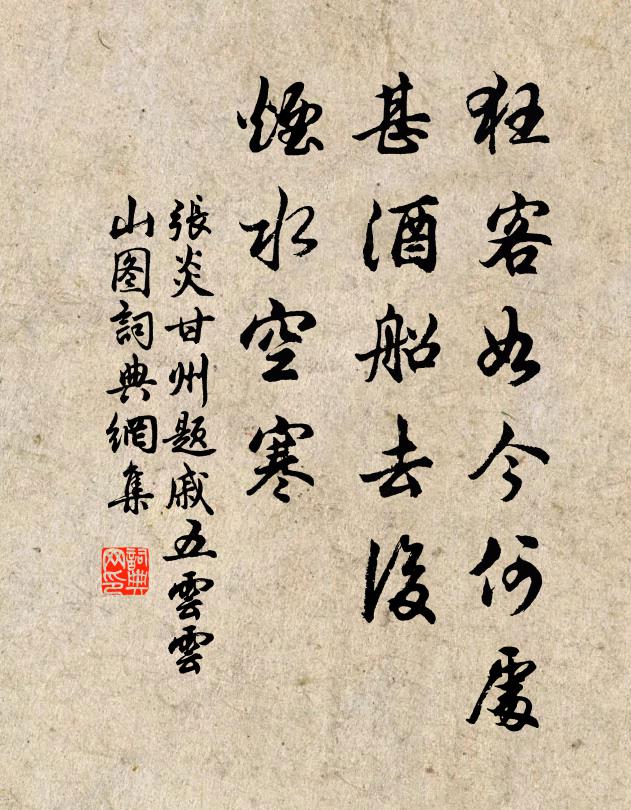 狂客如今何處
甚酒船去後
煙水空寒
張炎甘州題戚五雲雲
山图詞典網集
詞典網印